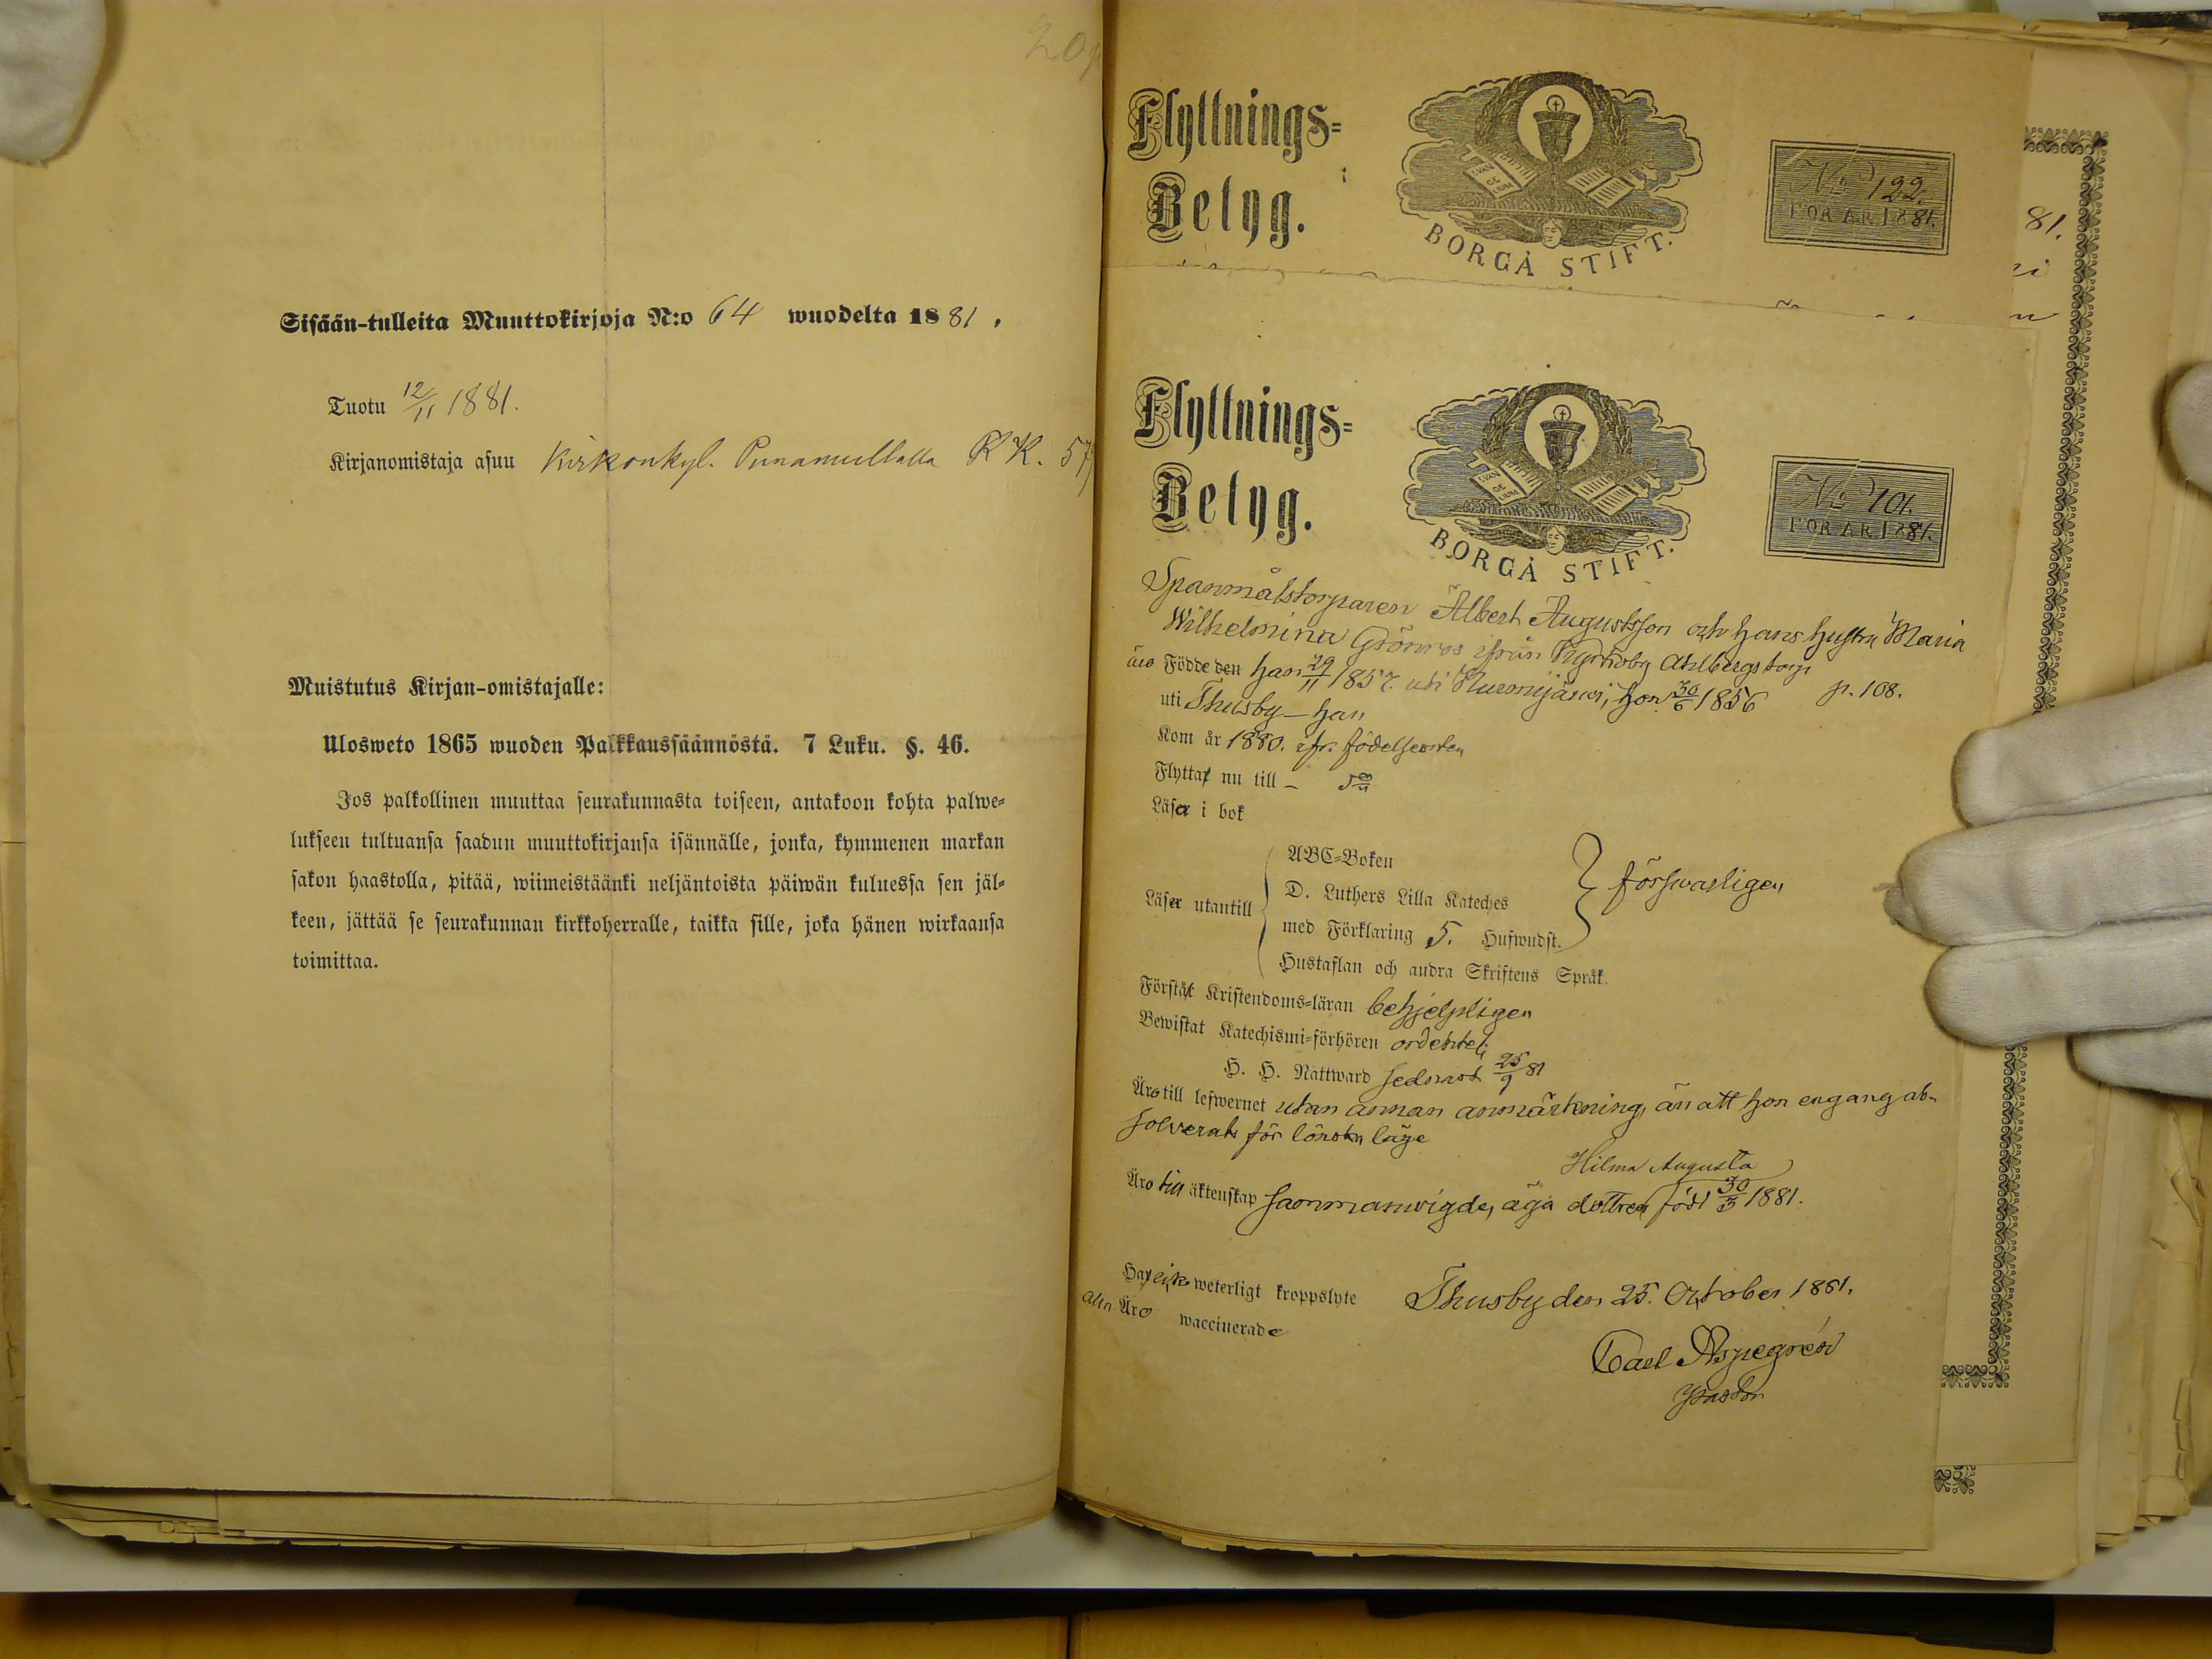 209
Sisään-tulleita Muuttokirjoja N:o 64 wuodelta 1881.
Tuotu 12/11 1881.
Kirjanomistaja asuu Kirkonkyl. Punamullalla R K. 57
Muistutus Kirjan-omistajalle:
Ulosweto 1865 wuoden Palkkaussäännöstä. 7 Luku. §. 46.
Jos palkollinen muuttaa seurakunnasta toiseen, antakoon kohta palwe-
lukseen tultuansa saadun muuttokirjansa isännälle, jonka, kymmenen markan
sakon haastolla, pitää, wiimeistäänki neljäntoista päiwän kuluessa sen jäl-
keen, jättää se seurakunnan kirkkoherralle, taikka sille, joka hänen wirkaansa
toimittaa.
Flyttnings-
Betyg.
EVAN
GE
LIUM
BORGÅ STIFT.
No 122.
FÖR ÅR 1881.
81.
Flyttnings-
Betyg.
EVAN
GE
LIUM
BORGÅ STIFT.
No 101.
FÖR ÅR 1881.
Spanmålstorparen Albert Augustsson och hans hustru Maria
Wilhelmina Grönros ifrån Ahlbergs torp
p. 108.
äro Födde den han 29/11 1857. uti Nurmijärwi, hon 30/6 1856
uti Thusby – han
Kom år 1880. ifr. födelseorten
Flyttar nu till –
Läser i bok
Läser utantill
ABC-Boken
D. Luthers Lilla Kateches
med Förklaring 5. Hufwudst.
Hustaflan och andra Skriftens Språk.
försvarligen
Förstår Kristendoms-läran behjelpligen
Bewistat Katechismi-förhören ordentel.
H. H. Nattward sednast 25/9 81
Äro till lefwernet utan annan anmärkning, än att hon engang ab-
solverats för lönska läge
Hilma Augusta
Äro till äktenskap sammanvigde, äga dottren född 30/3 1881.
Har ej weterligt kroppslyte
alla Äro waccinerade
Thusby den 25. October 1881.
Carl Aspegrén
Pastor